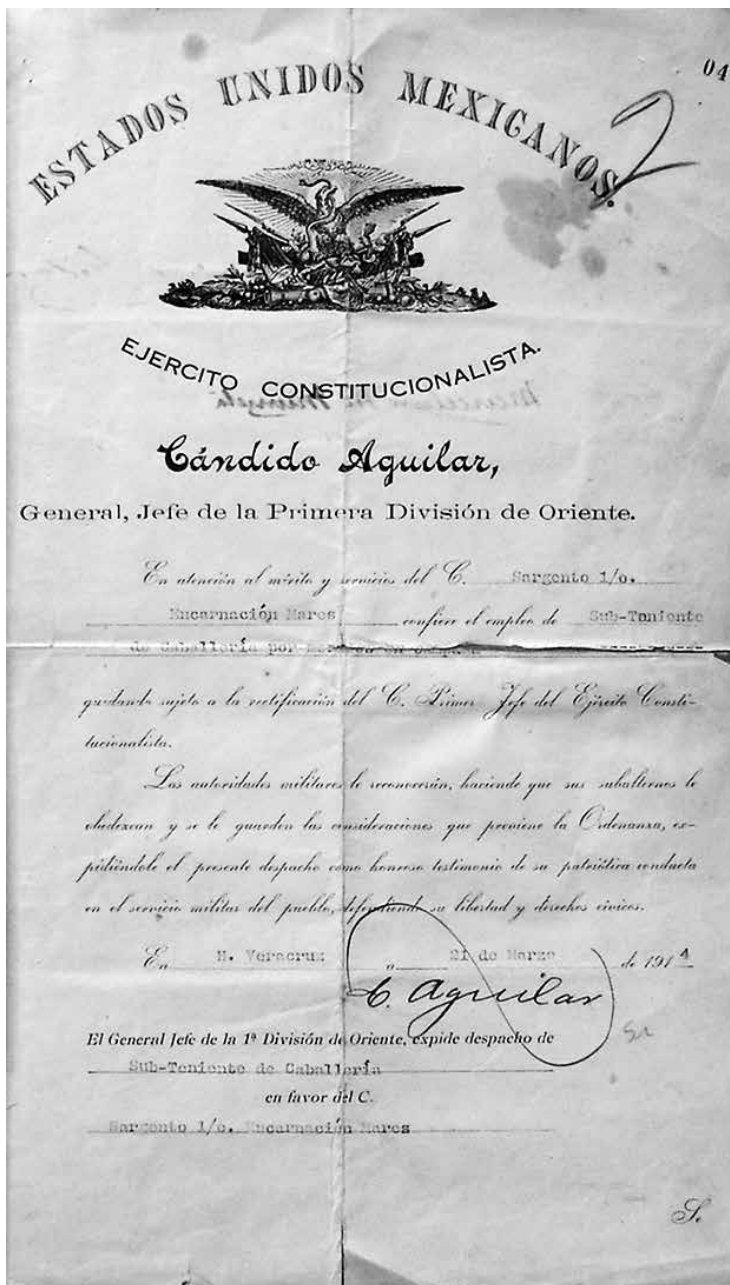 04
2
ESTADOS UNIDOS MEXICANOS.
EJERCITO CONSTITUCIONALISTA.
Cándido Aguilar,
General, Jefe de la Primera División de Oriente.
En atención al mérito y servicios del C. Sargento 1/o.
Encarnación Mares confiere el empleo de Sub-Teniente
de Caballería por
quedando sujeto a la rectificación del C. Primer Jefe del Ejército Consti-
tucionalista.
Las autoridades militares le reconocerán, haciendo que sus subalternos le
obedezcan y se le guarden las consideraciones que previene la Ordenanza, ex-
pidiéndole el presente despacho como honroso testimonio de su patriótica conducta
en el servicio militar del pueblo, defendiendo su libertad y derechos cívicos.
En H. Veracruz a 21 de Marzo de 1914
C. Aguilar
El General Jefe de la 1ª División de Oriente, expide despacho de
Sub-Teniente de Caballería
en favor del C.
Sargento 1/o. Encarnación Mares
S.